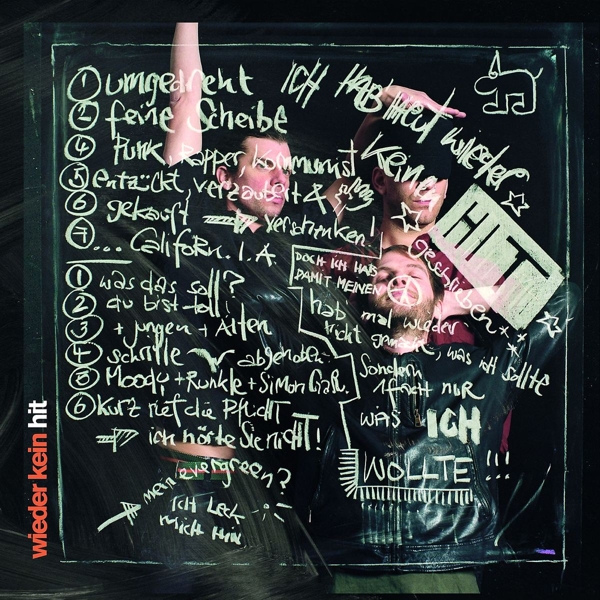 ① umgedreht
② feine Scheibe
④ Punk, Rapper, Kommunist
⑤ entzückt, verzaubert &
⑥ gekauft verschenken!
⑦ ... Californ. I. A.
① was das soll?
② du bist toll!
③ + Jungen + Alten
④ schrille abgehoben
⑤ Moody + Runkle + Simon
⑥ Kurz rief die Pflicht
ich hörte Sie nicht!
mein evergreen?
ICH Leck
mich
ICH HAB HEUT wieder
Keinen
HIT
geschrieben
DOCH ICH HAB
DAMIT MEINEN
hab mal wieder
nicht gemacht, was ich sollte
Sondern
1fach nur
was ICH
WOLLTE !!!
wieder kein hit